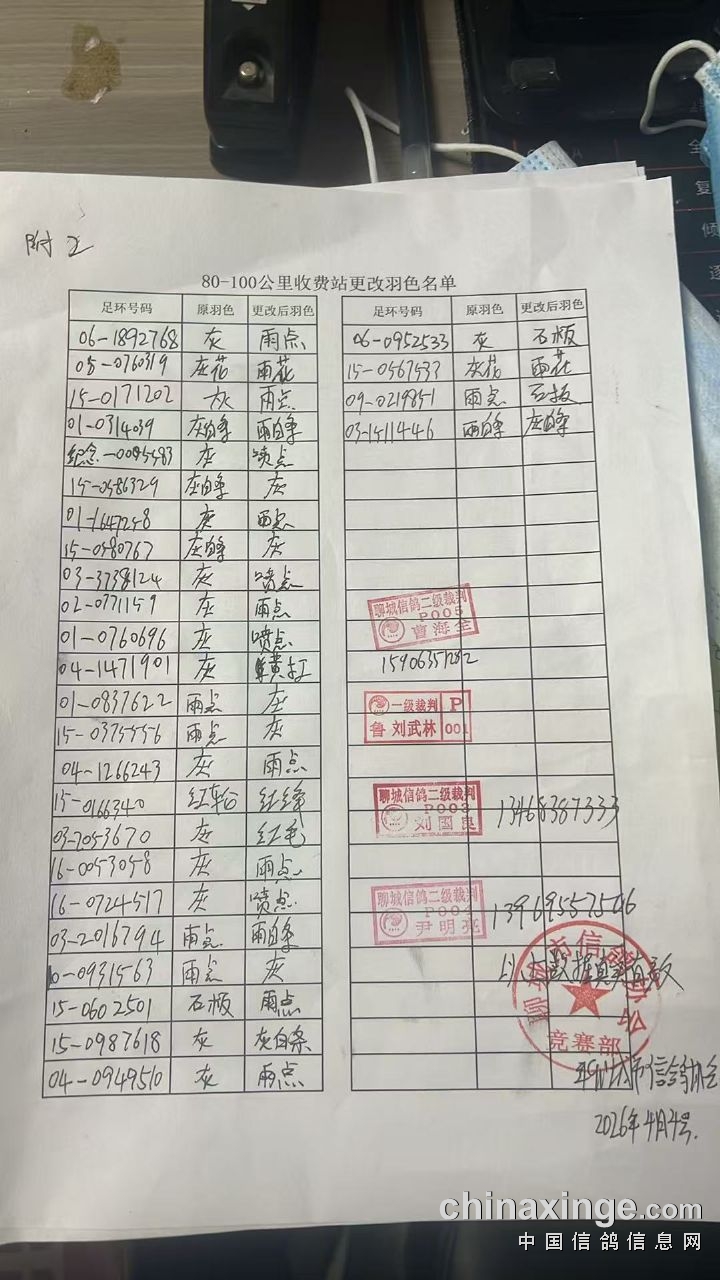 附
80-100公里收费站更改羽色名单
足环号码 原羽色 更改后羽色
06-1892768 灰 雨点
05-0760319 灰花 雨花
15-0171202 灰 雨点
01-0314039 灰白条 雨白条
纪念-0095583 灰 喷点
15-0586329 灰白条 灰
01-1647258 灰 雨点
15-0580767 灰白条 灰
03-3738124 灰 喷点
02-0771159 灰 雨点
01-0760696 灰 喷点
04-1471901 灰
01-0837622 雨点 灰
15-0375556 雨点 灰
04-1266243 灰 雨点
15-0166340 红轮 红绛
03-7053670 灰 红毛
16-0053058 灰 雨点
16-0724517 灰 喷点
03-2016794 雨点 雨白条
0-0931563 雨点 灰
15-0602501 石板 雨点
15-0987618 灰 灰白条
04-0949510 灰 雨点
足环号码 原羽色 更改后羽色
06-0952533 灰 石板
15-0567533 灰花 雨花
09-0219851 雨点 石板
03-1511446 雨白条 灰白条
聊城信鸽二级裁判
P005
曹海全
一级裁判 P
鲁 刘武林 001
聊城信鸽二级裁判
P003
刘国良
13468387333
聊城信鸽二级裁判
尹明亮
13969557506
以上数据真实有效
聊城市信鸽协会
竞赛部
聊城市信鸽协会
2026年4月4号.
全
复
倾
逐
chinaxinge.com
中国信鸽信息网